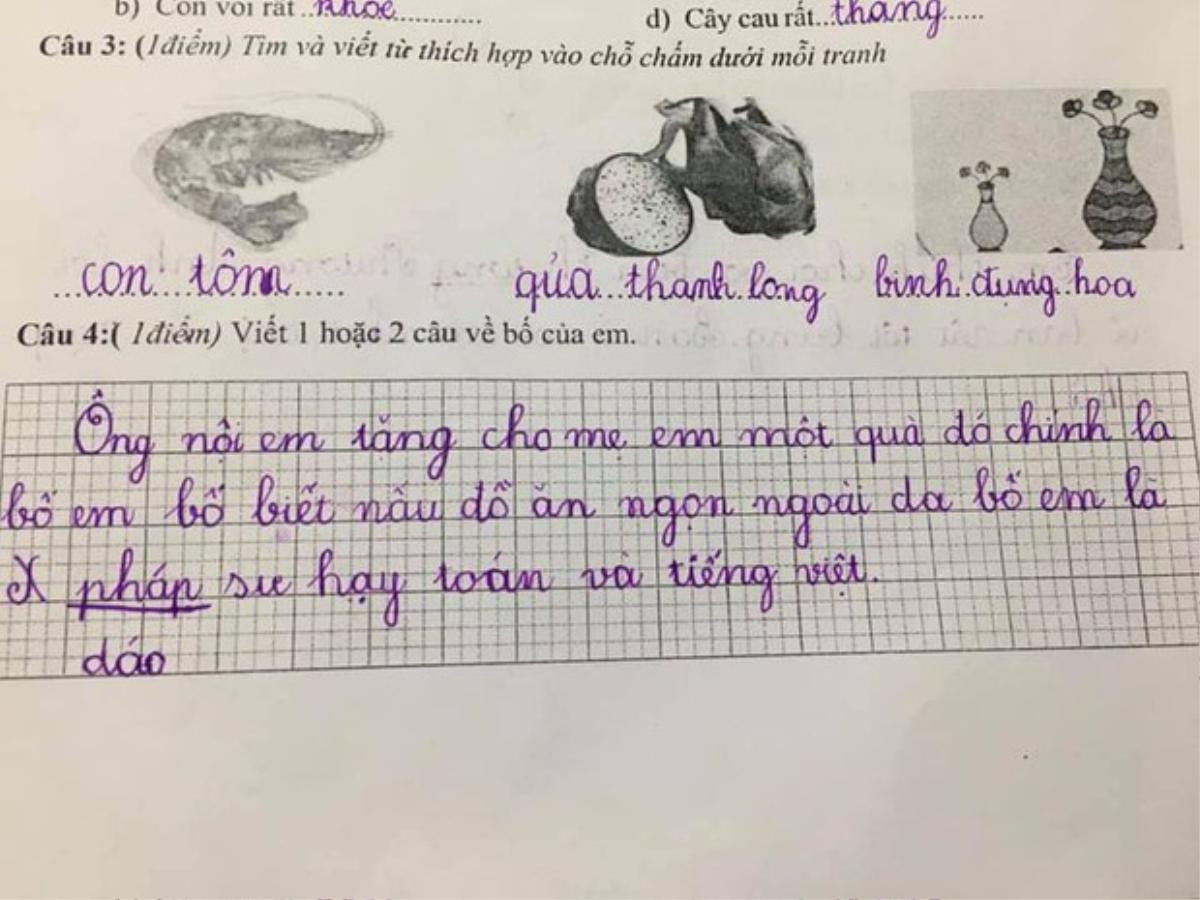 b) Con voi rất ..khỏe............
d) Cây cau rất..thẳng......
Câu 3: (1điểm) Tìm và viết từ thích hợp vào chỗ chấm dưới mỗi tranh
...con....tôm......
qủa...thanh.long
bình.đựng.hoa
Câu 4:( 1điểm) Viết 1 hoặc 2 câu về bố của em.
Ông nội em tặng cho mẹ em một quà dó chính là
bố em bố biết nấu dồ ăn ngọn ngoài da bố em là
X pháp sư hạy toán và tiếng việt.
dáo